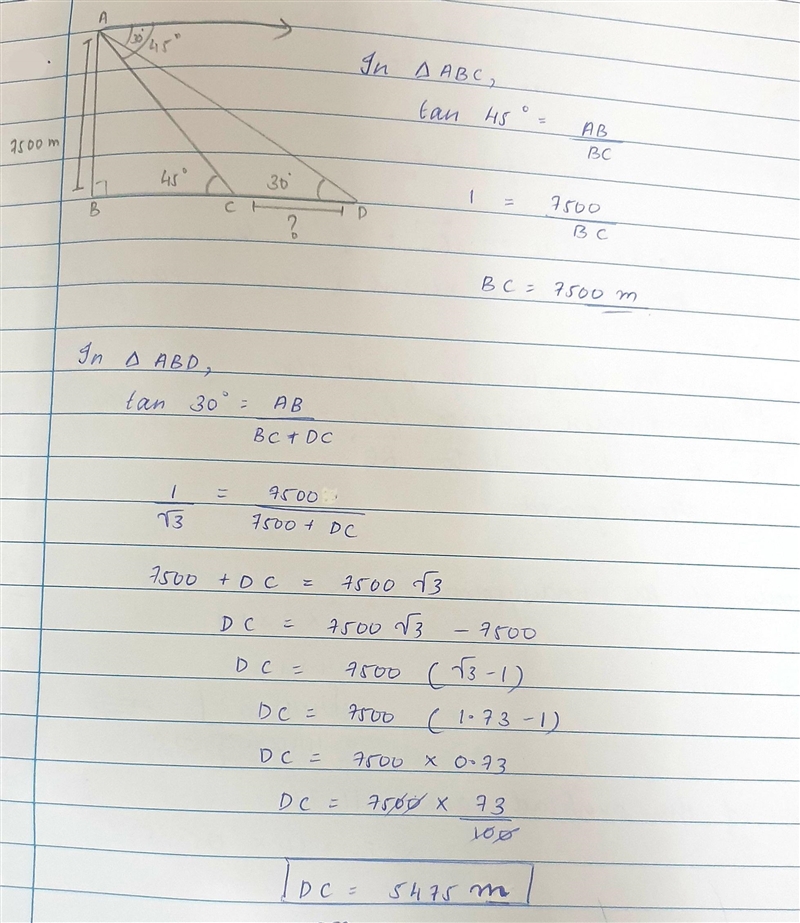 A
30° 45°
7500 m
45° 30°
B C D
?
In △ ABC,
tan 45° = AB / BC
1 = 7500 / BC
BC = 7500 m
In △ ABD,
tan 30° = AB / BC + DC
1 / √3 = 7500 / 7500 + DC
7500 + DC = 7500 √3
DC = 7500 √3 - 7500
DC = 7500 (√3 - 1)
DC = 7500 (1.73 - 1)
DC = 7500 × 0.73
DC = 7500 × 73 / 100
DC = 5475 m